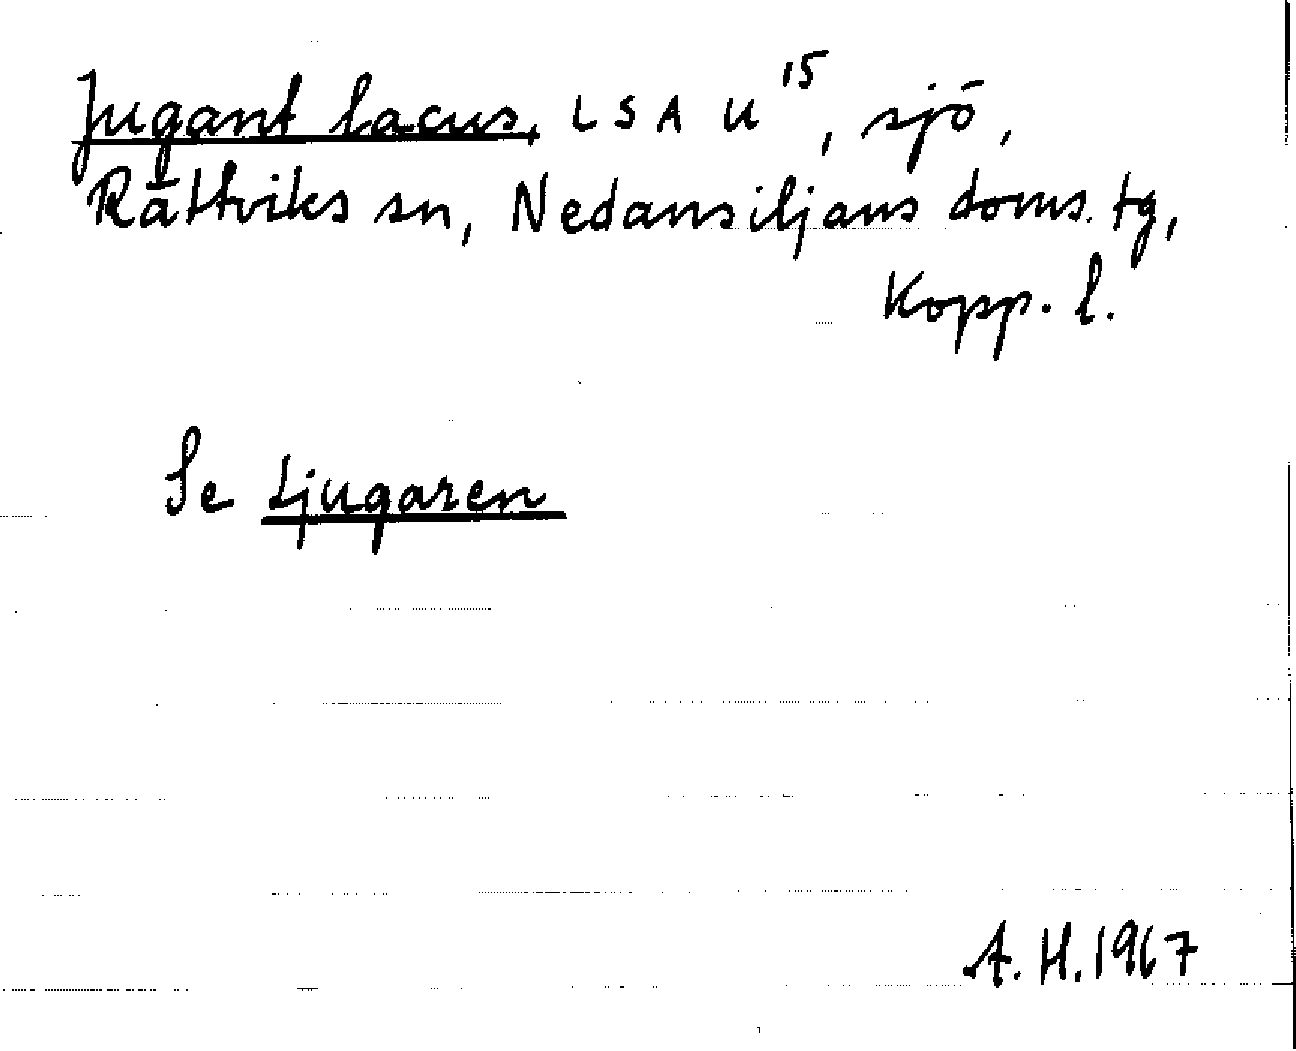 Jugant lacus, LSA U 15, sjö,
Rättviks sn, Nedansiljans doms. tg,
Kopp. l.
Se Ljugaren
A. H. 1967